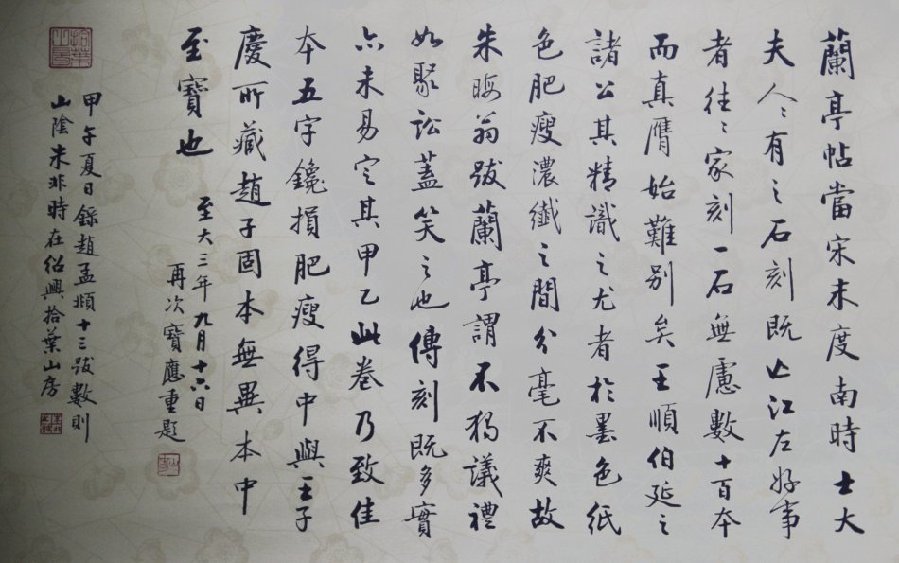 蘭亭帖當宋未度南時士大
夫人人有之石刻既亡江左好事
者往往家刻一石無慮數十百本
而真贋始難別矣王順伯延之
諸公其精識之尤者於墨色紙
色肥瘦濃纖之間分毫不爽故
朱晦翁跋蘭亭謂不獨議禮
如聚訟蓋笑之也傳刻既多實
亦未易定其甲乙此卷乃致佳
本五字鑱損肥瘦得中與王子
慶所藏趙子固本無異本中
至寶也
至大三年九月十六日
再次寶應重題
甲午夏日錄趙孟頫十三跋數則
山陰朱非時在紹興拾葉山房